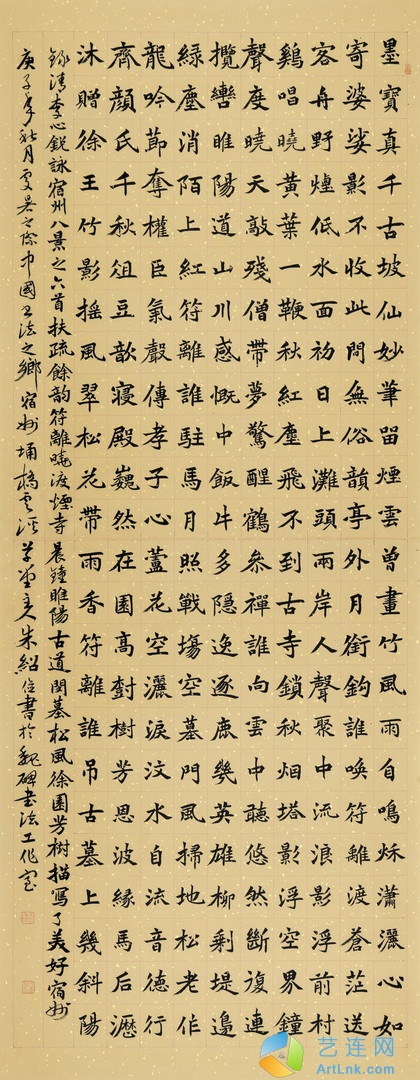 墨寶真千古坡仙妙筆留煙雲曾畫竹風雨自鳴秌瀟灑心如
寄婆娑影不收此間無俗韻亭外月銜鈎誰喚符離渡蒼茫送
客舟野煙低水面初日上灘頭兩岸人聲聚中流浪影浮前村
鷄唱曉黃葉一鞭秋紅塵飛不到古寺鎖秋烟塔影浮空界鐘
聲度曉天敲殘僧帶夢驚醒鶴參禪誰向雲中聽悠然斷復連
攬轡睢陽道山川感慨中飯牛多隱逸逐鹿幾英雄柳剩堤邊
綠塵消陌上紅符離誰駐馬月照戰場空墓門風掃地松老作
龍吟節奪權臣氣聲傳孝子心蓋花空灑淚汶水自流音德行
齊顏氏千秋俎豆歆寢殿巍然在園高對樹芳恩波緣馬后瀝
沐贈徐王竹影摇風翠松花帶雨香符離誰吊古墓上幾斜陽
錄清李心銳詠宿州八景之六首扶疏餘韵符離曉渡煙寺晨鐘睢陽古道閔墓松風徐園芳樹描寫了美好宿州
庚子年秋月 之際中國書法之鄉宿州埇橋 主人朱紹 書於魏碑書法工作室
艺连网
ArtLnk.com